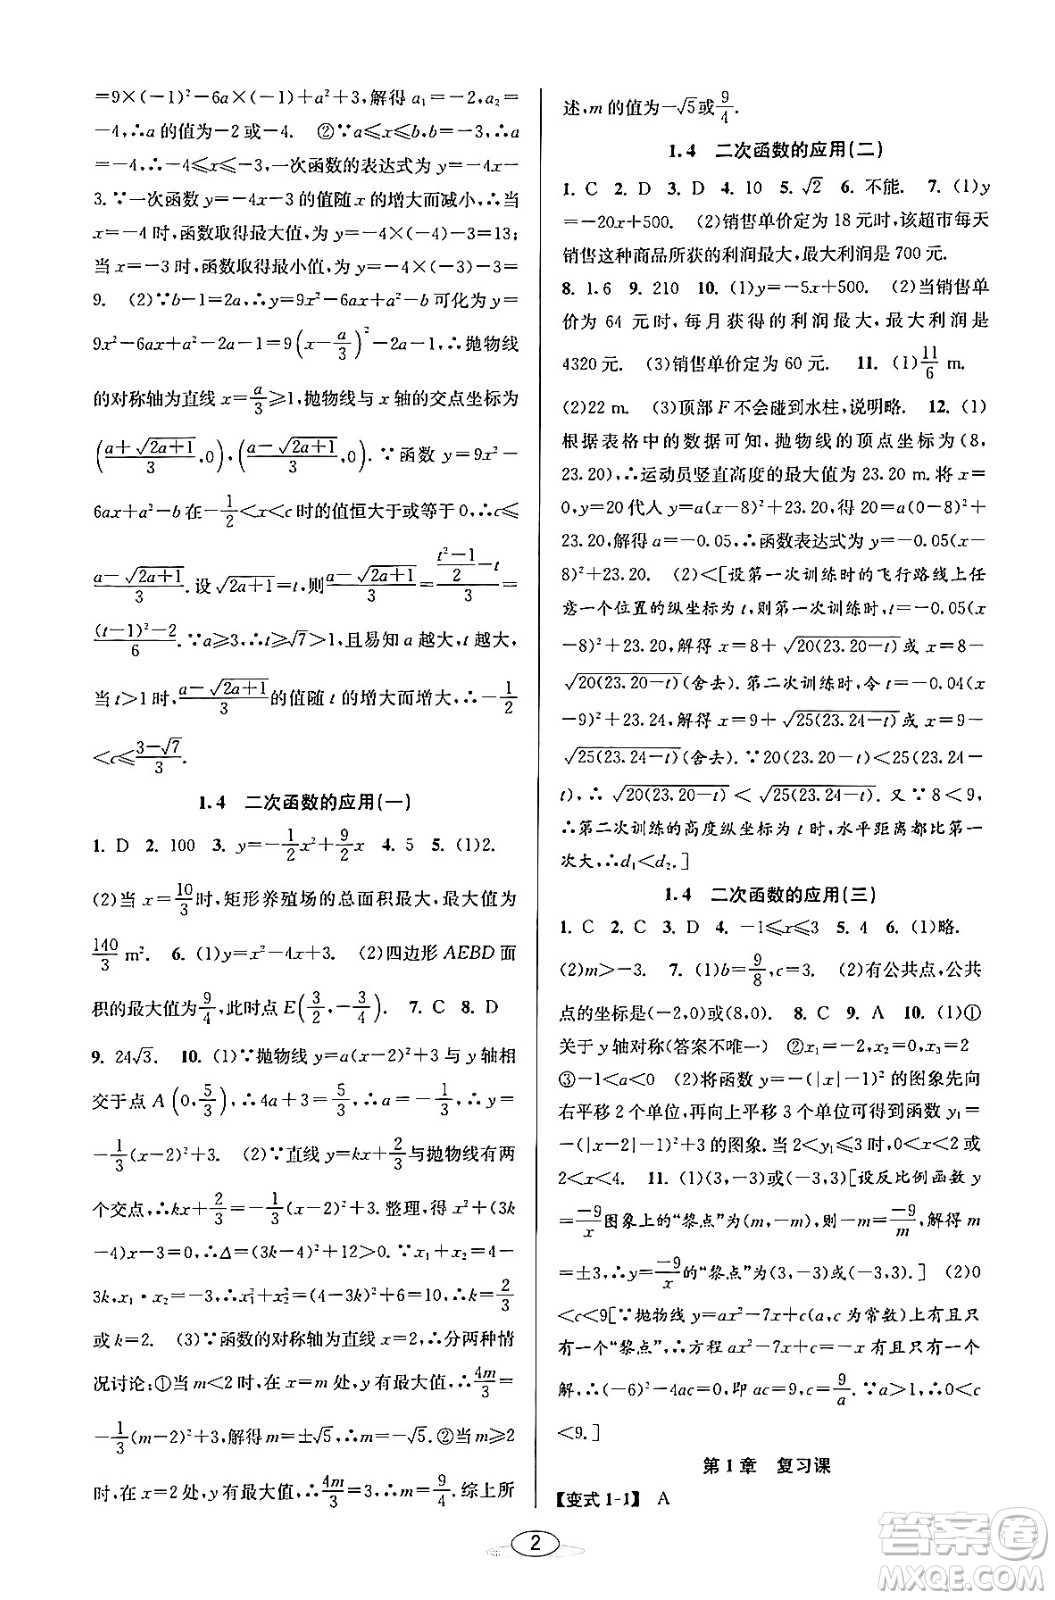 =9×(-1)²-6a×(-1)+a²+3,解得 a₁=-2,a₂=
-4,∴a 的值为-2 或-4. ②∵a≤x≤b,b=-3,∴a
=-4,∴-4≤x≤-3,一次函数的表达式为 y=-4x-
3.∵一次函数 y=-4x-3 的值随 x 的增大而减小,∴当 x
=-4 时,函数取得最大值,为 y=-4×(-4)-3=13;
当 x=-3 时,函数取得最小值,为 y=-4×(-3)-3=
9. (2)∵b-1=2a,∴y=9x²-6ax+a²-b 可化为 y=
9x²-6ax+a²-2a-1=9(x-a/3)²-2a-1,∴抛物线
的对称轴为直线 x=a/3≥1,抛物线与 x 轴的交点坐标为
((a+√(2a+1))/3,0),((a-√(2a+1))/3,0).∵函数 y=9x²-
6ax+a²-b 在-1/2<x<c 时的值恒大于或等于 0,∴c≤
(a-√(2a+1))/3.设√(2a+1)=t,则(a-√(2a+1))/3=((t²-1)/2-t)/3=
((t-1)²-2)/6.∵a≥3,∴t≥√7>1,且易知 a 越大,t 越大,
当 t>1 时,(a-√(2a+1))/3的值随 t 的增大而增大,∴-1/2
<c≤(3-√7)/3.
1.4 二次函数的应用(一)
1. D 2. 100 3. y=-1/2x²+9/2x 4. 5 5. (1)2.
(2)当 x=10/3时,矩形养殖场的总面积最大,最大值为
140/3 m². 6. (1)y=x²-4x+3. (2)四边形 AEBD 面
积的最大值为9/4,此时点 E(3/2,-3/4). 7. C 8. D
9. 24√3. 10. (1)∵抛物线 y=a(x-2)²+3 与 y 轴相
交于点 A(0,5/3),∴4a+3=5/3,∴a=-1/3,∴y=
-1/3(x-2)²+3. (2)∵直线 y=kx+2/3与抛物线有两
个交点,∴kx+2/3=-1/3(x-2)²+3,整理,得 x²+(3k
-4)x-3=0,∴Δ=(3k-4)²+12>0.∵x₁+x₂=4-
3k,x₁·x₂=-3,∴x₁²+x₂²=(4-3k)²+6=10,∴k=2/3
或 k=2. (3)∵函数的对称轴为直线 x=2,∴分两种情
况讨论:①当 m<2 时,在 x=m 处,y 有最大值,∴4m/3=
-1/3(m-2)²+3,解得 m=±√5,∴m=-√5.②当 m≥2
时,在 x=2 处,y 有最大值,∴4m/3=3,∴m=9/4.综上所
述,m 的值为-√5或9/4.
1.4 二次函数的应用(二)
1. C 2. D 3. D 4. 10 5. √2 6. 不能. 7. (1)y
=-20x+500. (2)销售单价定为 18 元时,该超市每天
销售这种商品所获的利润最大,最大利润是 700 元.
8. 1.6 9. 210 10. (1)y=-5x+500. (2)当销售单
价为 64 元时,每月获得的利润最大,最大利润是
4320 元. (3)销售单价定为 60 元. 11. (1)11/6 m.
(2)22 m. (3)顶部 F 不会碰到水柱,说明略. 12. (1)
根据表格中的数据可知,抛物线的顶点坐标为(8,
23.20),∴运动员竖直高度的最大值为 23.20 m.将 x=
0,y=20 代人 y=a(x-8)²+23.20,得 20=a(0-8)²+
23.20,解得 a=-0.05,∴函数表达式为 y=-0.05(x-
8)²+23.20. (2)<[设第一次训练时的飞行路线上任
意一个位置的纵坐标为 t,则第一次训练时,t=-0.05(x
-8)²+23.20,解得 x=8+√(20(23.20-t))或 x=8-
√(20(23.20-t))(舍去).第二次训练时,令 t=-0.04(x
-9)²+23.24,解得 x=9+√(25(23.24-t))或 x=9-
√(25(23.24-t))(舍去).∵20(23.20-t)<25(23.24-
t),∴√(20(23.20-t))<√(25(23.24-t)).又∵8<9,
∴第二次训练的高度纵坐标为 t 时,水平距离都比第一
次大,∴d₁<d₂.]
1.4 二次函数的应用(三)
1. C 2. C 3. D 4. -1≤x≤3 5. 4 6. (1)略.
(2)m>-3. 7. (1)b=9/8,c=3. (2)有公共点,公共
点的坐标是(-2,0)或(8,0). 8. C 9. A 10. (1)①
关于 y 轴对称(答案不唯一) ②x₁=-2,x₂=0,x₃=2
③-1<a<0 (2)将函数 y=-(|x|-1)²的图象先向
右平移 2 个单位,再向上平移 3 个单位可得到函数 y₁=
-(|x-2|-1)²+3 的图象.当 2<y₁≤3 时,0<x<2 或
2<x<4. 11. (1)(3,-3)或(-3,3)[设反比例函数 y=
-9/x图象上的“黎点”为(m,-m),则-m=-9/m,解得 m
=±3,∴y=-9/x的“黎点”为(3,-3)或(-3,3).] (2)0
<c<9[∵抛物线 y=ax²-7x+c(a,c 为常数)上有且只
有一个“黎点”,∴方程 ax²-7x+c=-x 有且只有一个
解,∴(-6)²-4ac=0,即 ac=9,c=9/a.∵a>1,∴0<c
<9.]
第 1 章 复习课
【变式 1-1】 A
2
答案圈
MXQE.COM